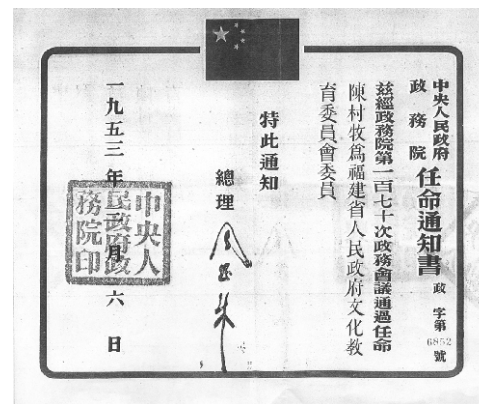 中央人民政府
政務院
任命通知書
政字第
6852
號
茲經政務院第一百七十次政務會議通過任命
陳村牧爲福建省人民政府文化教
育委員會委員
特此通知
總理
周恩來
一九五三年 月六日
中央人
民政府政
務院印